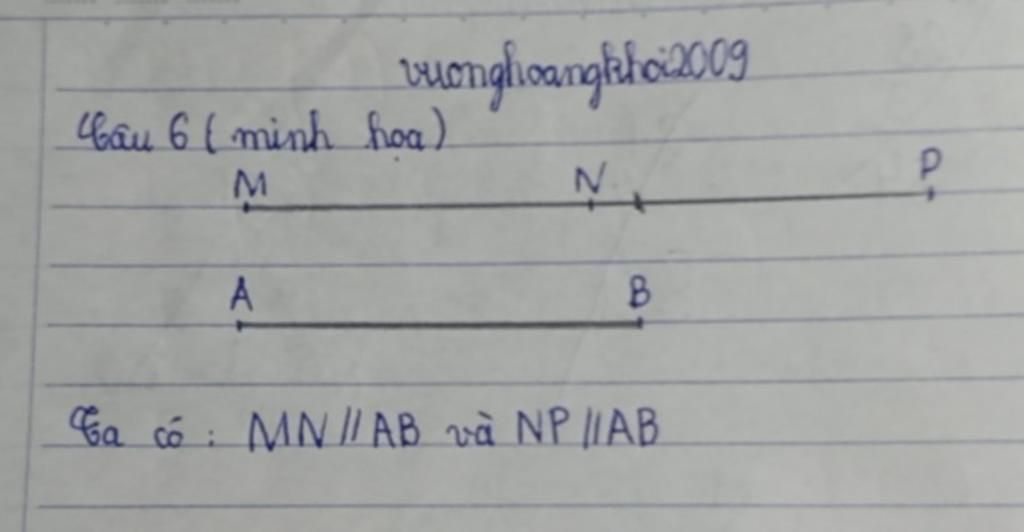 vuonghoangkhoi2009
Câu 6 (minh họa)
M N P
A B
Ta có : MN // AB và NP // AB